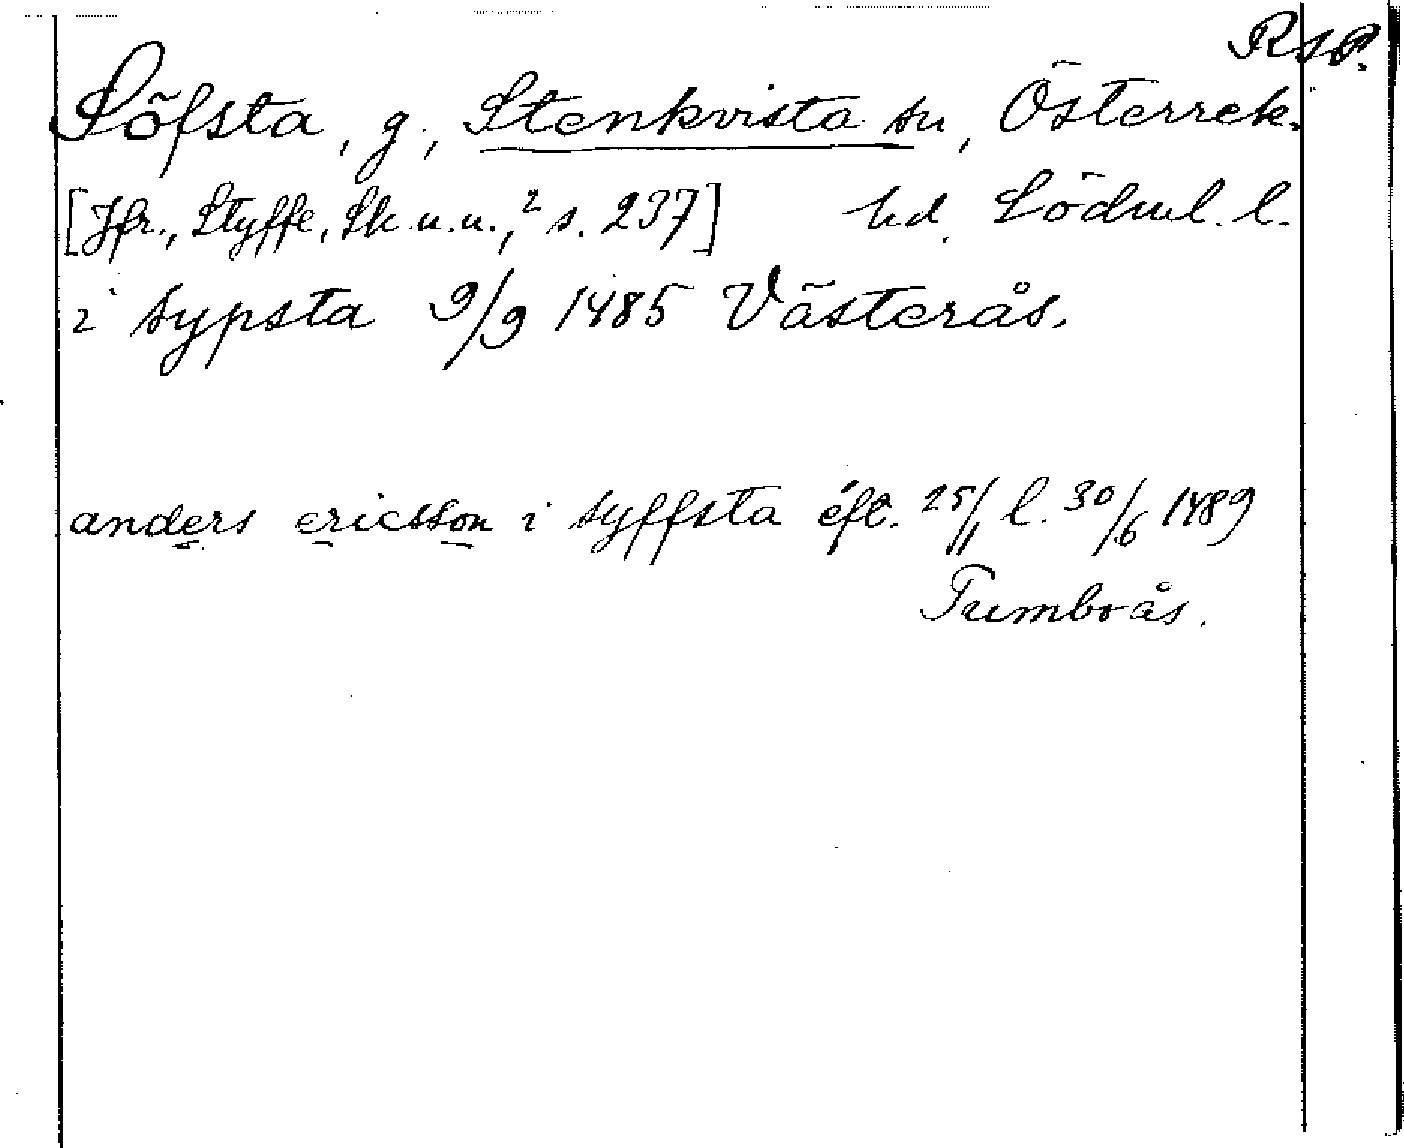 RAP.
Söfsta, g., Stenkvista sn, Österrek.
[Jfr., Styffe, Sk.u.u.,² s. 237] hd. Södml. l.
i sypsta 9/9 1485 Västerås.
anders ericsson i syffsta éft. 25/11 l. 30/6 1489
Tumboås.